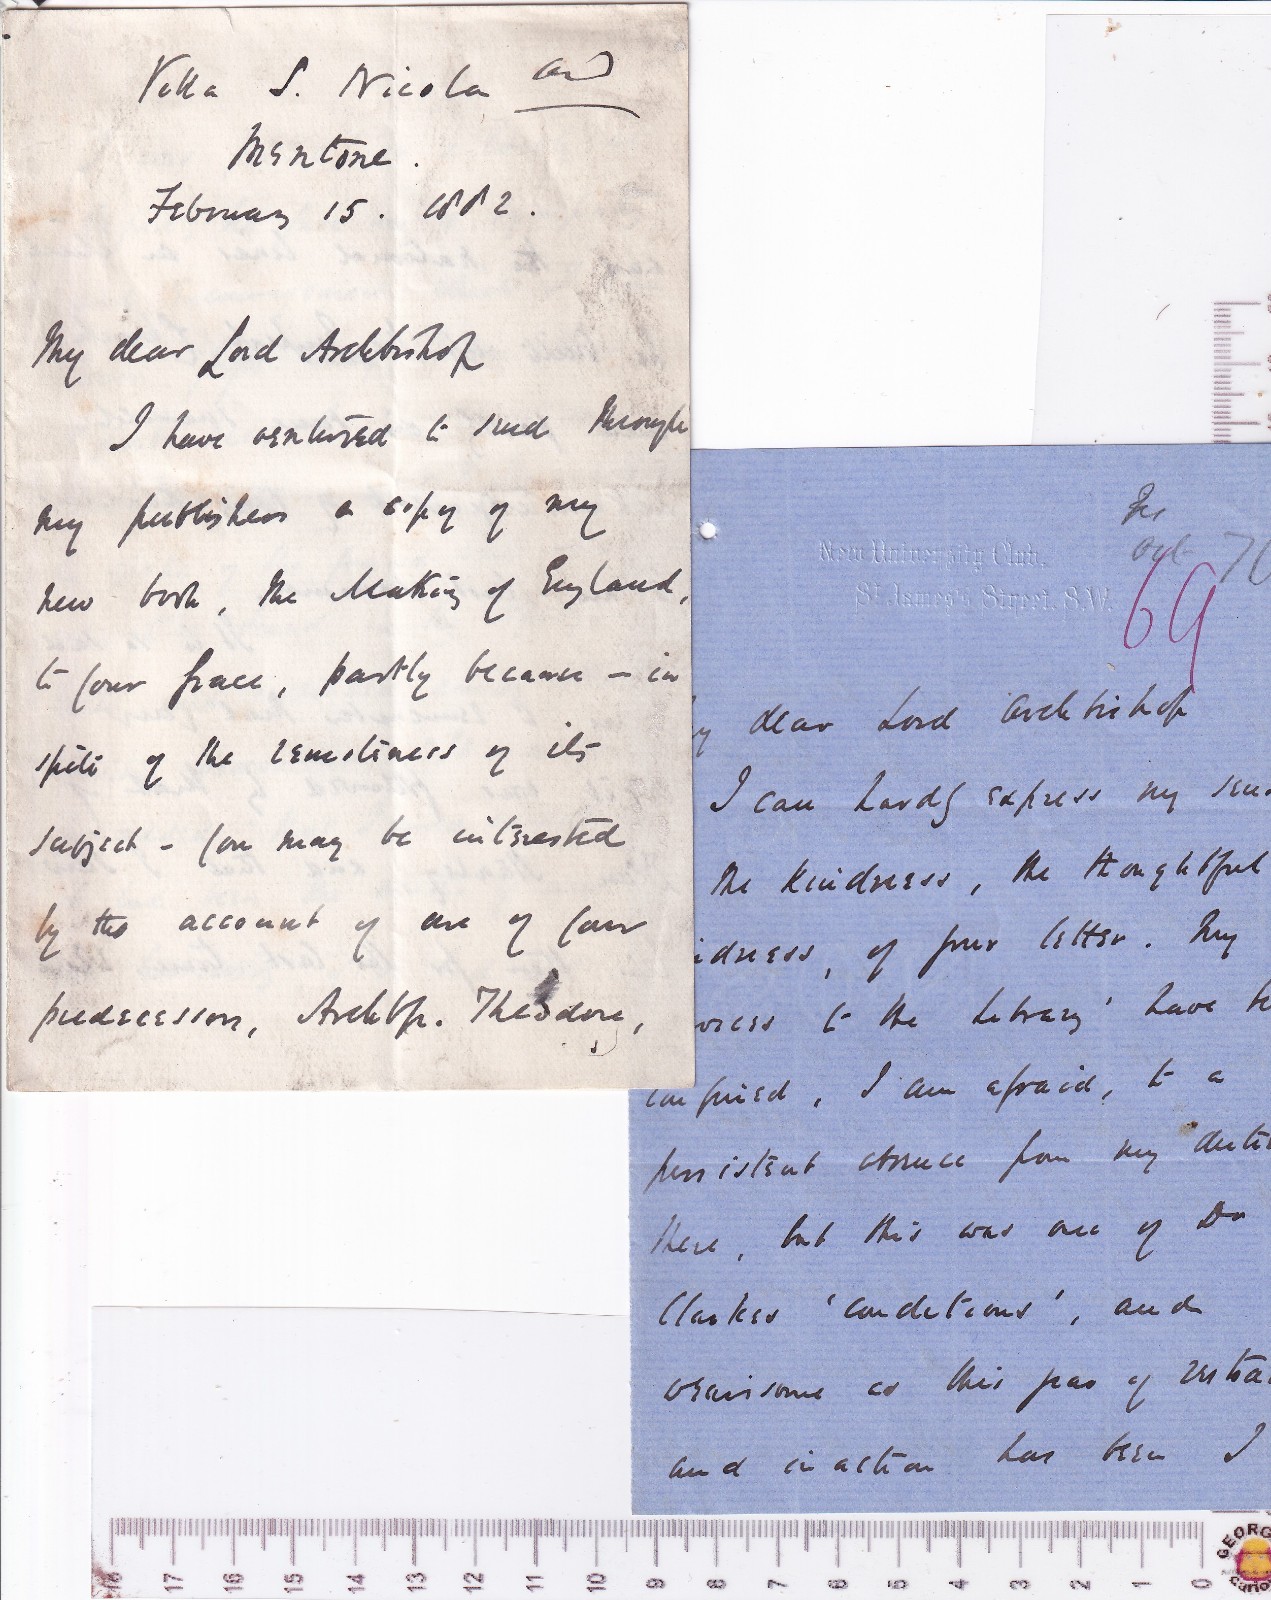 Villa S. Nicola
Mentone.
February 15. 1882.
My dear Lord Archbishop
I have ventured to send through
my publishers a copy of my
new book, the Making of England,
to your Grace, partly because - in
spite of the remoteness of its
subject - you may be interested
by the account of one of your
predecessors, Archbp. Theodore,
New University Club.
St. James's Street. S.W.
Oct 70
69
dear Lord Archbishop
I can hardly express my
the kindness, the thoughtful
of your letter. My
to the Library' have
confined, I am afraid, to a
persistent absence from my
there, but this was one of Dr
Clarkes 'conditions', and
wearisome as this year of
and inaction has been I
18 17 16 15 14 13 12 11 10 9 8 7 6 5 4 3 2 1 0
GEORG